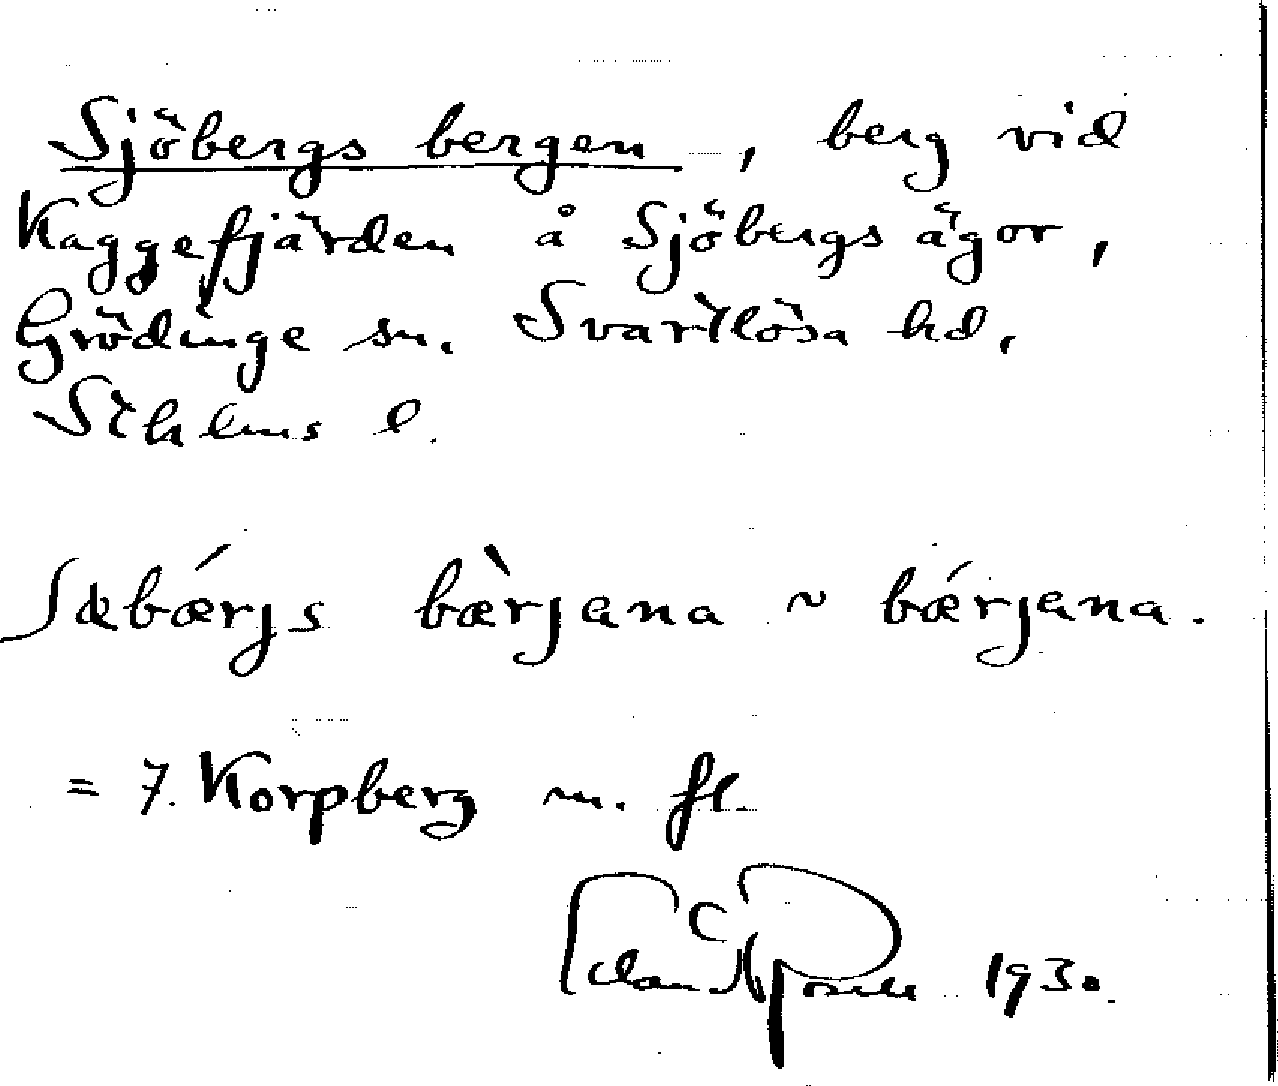 Sjöbergs bergen, berg vid
Kaggefjärden å Sjöbergs ägor,
Grödinge sn. Svartlösa hd,
Sthlms l.
bærjana ~ bǽrjana.
= 7. Korpberg m. fl.
1930.